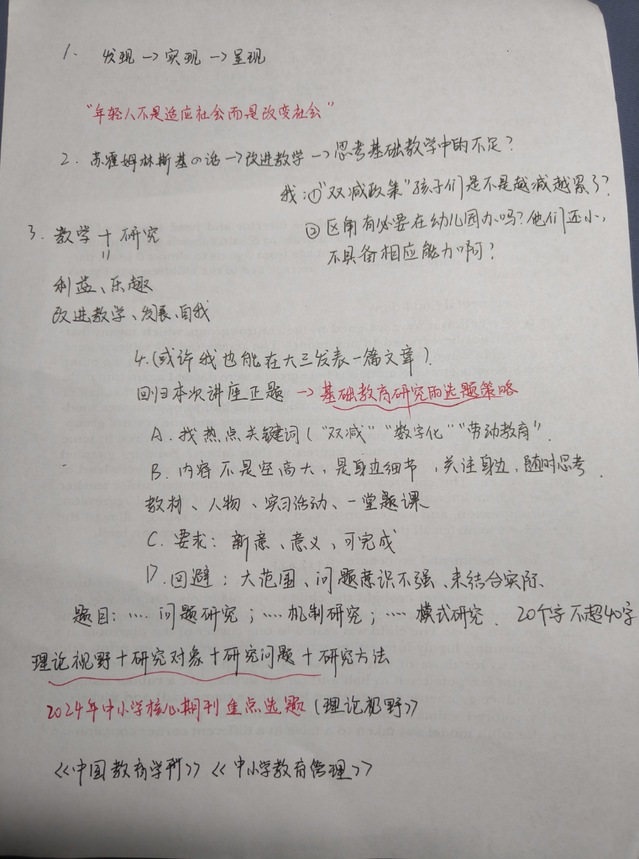 1. 发现→实现→呈现
"年轻人不是适应社会而是改变社会"
2. 苏霍姆林斯基の话→改进教学→思考基础教学中的不足？
我：①"双减政策"孩子们是不是越减越累了？
②区角有必要在幼儿园办吗？他们还小，
不具备相应能力啊？
3. 教学+研究
=
利益、乐趣
改进教学、发展、自我
4.(或许我也能在大三发表一篇文章).
回归本次讲座正题→基础教育研究的选题策略
A. 找热点关键词("双减""数字化""劳动教育".
B. 内容不是空高大，是身边细节，关注身边，随时思考.
教材、人物、实习活动、一堂题课
C. 要求：新意、意义、可完成
D. 回避：大范围、问题意识不强、未结合实际.
题目：.... 问题研究；.... 机制研究；.... 模式研究. 20个字不超40字
理论视野+研究对象+研究问题+研究方法
2024年中小学核心期刊重点选题(理论视野》
<<中国教育学刊>> <<中小学教育管理>>